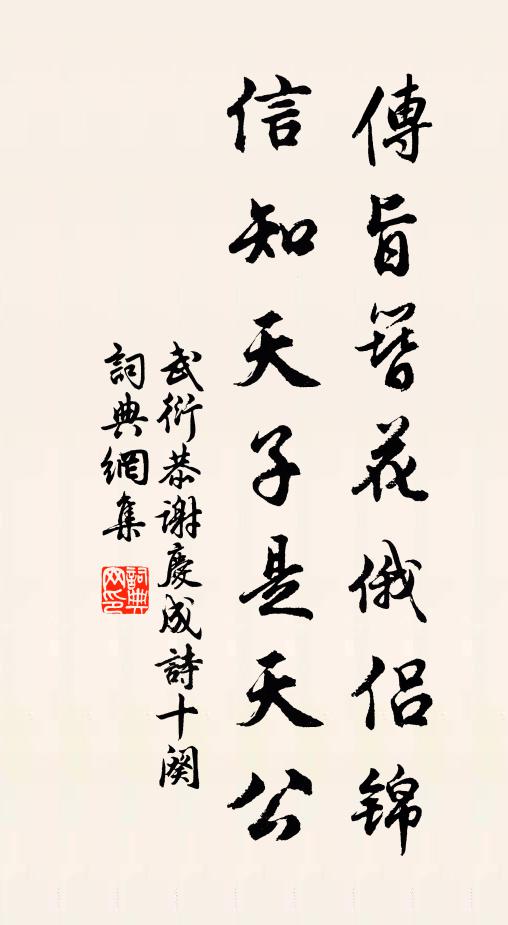 傳旨簪花俄侣錦
信知天子是天公
武衍恭謝慶成詩十闋
詞典網集
詞典網印